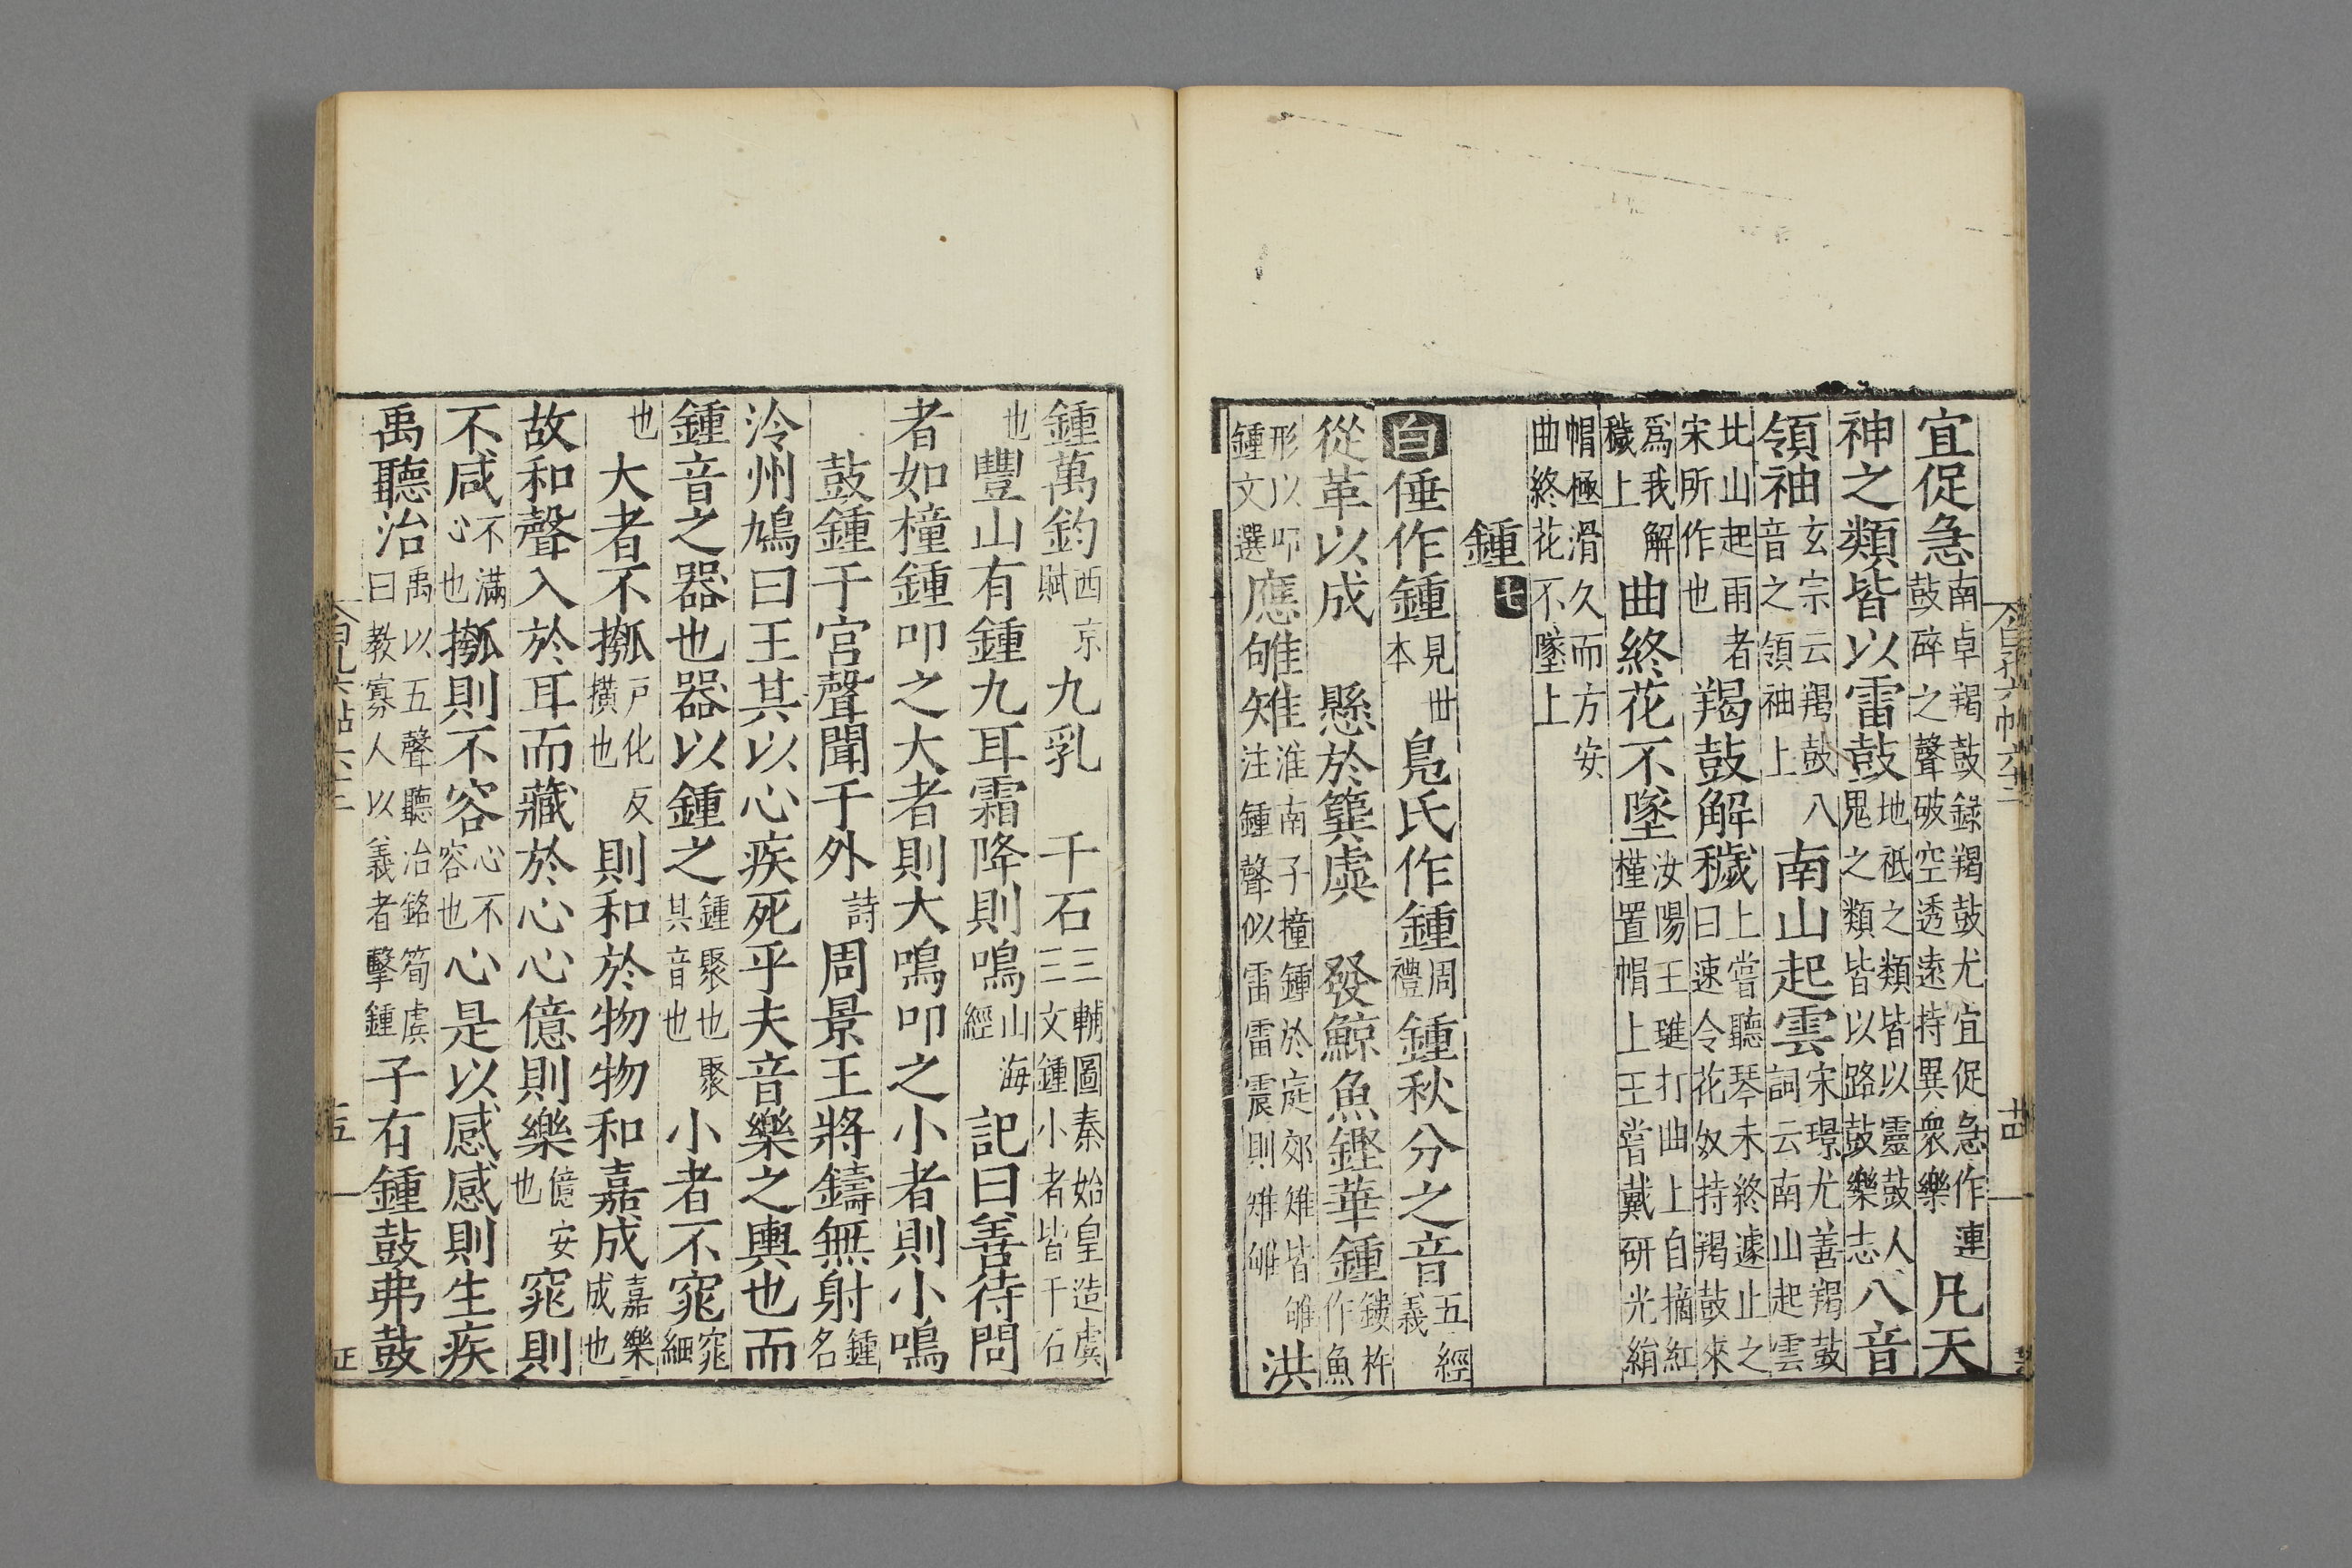 宜促急南卓羯鼓録羯鼓尤宜促急作鼓碎之聲破空透遠持異衆樂連凡天
神之類皆以雷鼓地祇之類皆以靈鼓人鬼之類皆以路鼓樂志八音
領袖玄宗云羯鼓八音之領袖上南山起雲宋璟尤善羯鼓詞云南山起雲
北山起雨者宋所作也羯鼓解穢上嘗聽琴未終遽止之曰速令花奴持羯鼓來
爲我解穢上曲終花不墜汝陽王璡打曲上自摘紅槿置帽上王嘗戴研光絹
帽極滑久而方安曲終花不墜上
鍾七
白倕作鍾見世本鳧氏作鍾周禮鍾秋分之音五經義
從革以成懸於簨虡發鯨魚鏗華鍾鏤杵作魚
形以叩鍾文選應雊雉淮南子撞鍾於庭郊雉皆雊注鍾聲似雷雷震則雉雊洪
鍾萬鈞西京賦九乳千石三輔圖秦始皇造虡三文鍾小者皆千石
也豐山有鍾九耳霜降則鳴山海經記曰善待問
者如橦鍾叩之大者則大鳴叩之小者則小鳴
鼓鍾于宮聲聞于外詩周景王將鑄無射鍾名
泠州鳩曰王其以心疾死乎夫音樂之輿也而
鍾音之器也器以鍾之鍾聚也聚其音也小者不窕窕細
也大者不摦戸化反橫也則和於物物和嘉成嘉樂成也
故和聲入於耳而藏於心心億則樂億安也窕則
不咸不滿心也摦則不容心不容也心是以感感則生疾
禹聽治禹以五聲聽治銘筍虡曰教寡人以義者擊鍾子有鍾鼓弗鼓